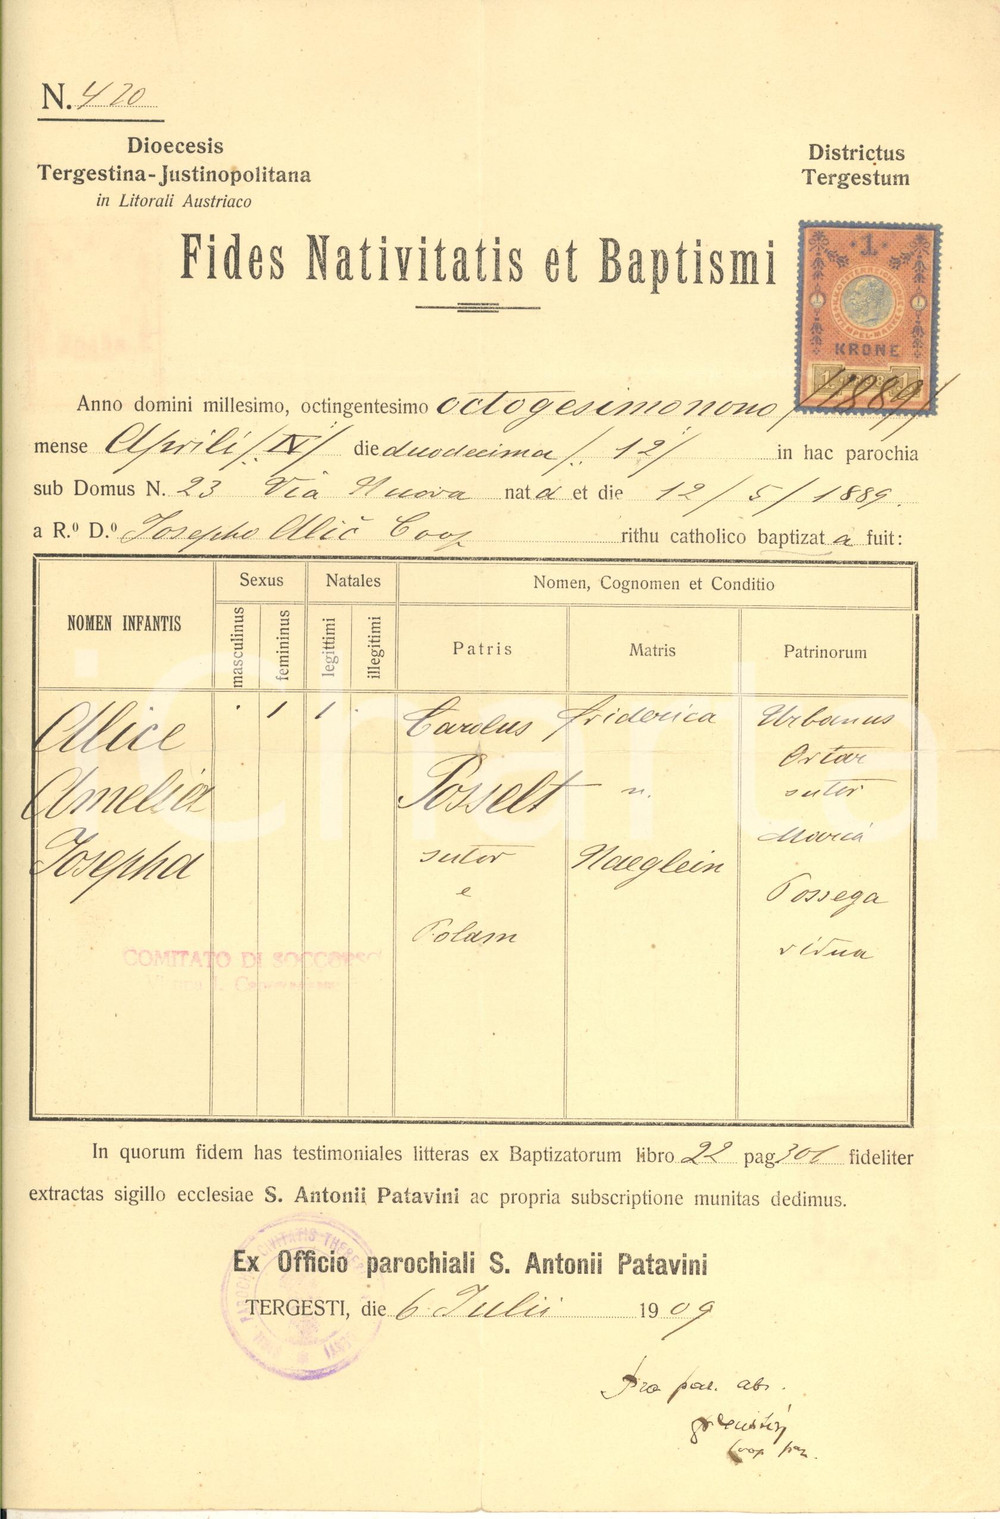 N. 420
Dioecesis
Tergestina-Justinopolitana
in Litorali Austriaco
Districtus
Tergestum
Fides Nativitatis et Baptismi
1
KRONE
Anno domini millesimo, octingentesimo octogesimo nono /1889/
mense Aprili /IV/ die duodecima /12/ in hac parochia
sub Domus N. 23 Via Nuova nat a et die 12/5/1889.
a R.º D.º Josepho Alič Coop rithu catholico baptizat a fuit:
NOMEN INFANTIS
Sexus
masculinus
femininus
Natales
legittimi
illegitimi
Nomen, Cognomen et Conditio
Patris
Matris
Patrinorum
Alice
Amelia
Josepha
1
1
Carolus
Posselt
sutor
e
Friderica
n.
Naeglein
Urbanus
sutor
Maria
Possega
vidua
COMITATO DI SOCCORSO
In quorum fidem has testimoniales litteras ex Baptizatorum libro 22 pag 301 fideliter
extractas sigillo ecclesiae S. Antonii Patavini ac propria subscriptione munitas dedimus.
Ex Officio parochiali S. Antonii Patavini
TERGESTI, die 6 Julii 1909
Pro par. abs.
Coop par.
iCharta